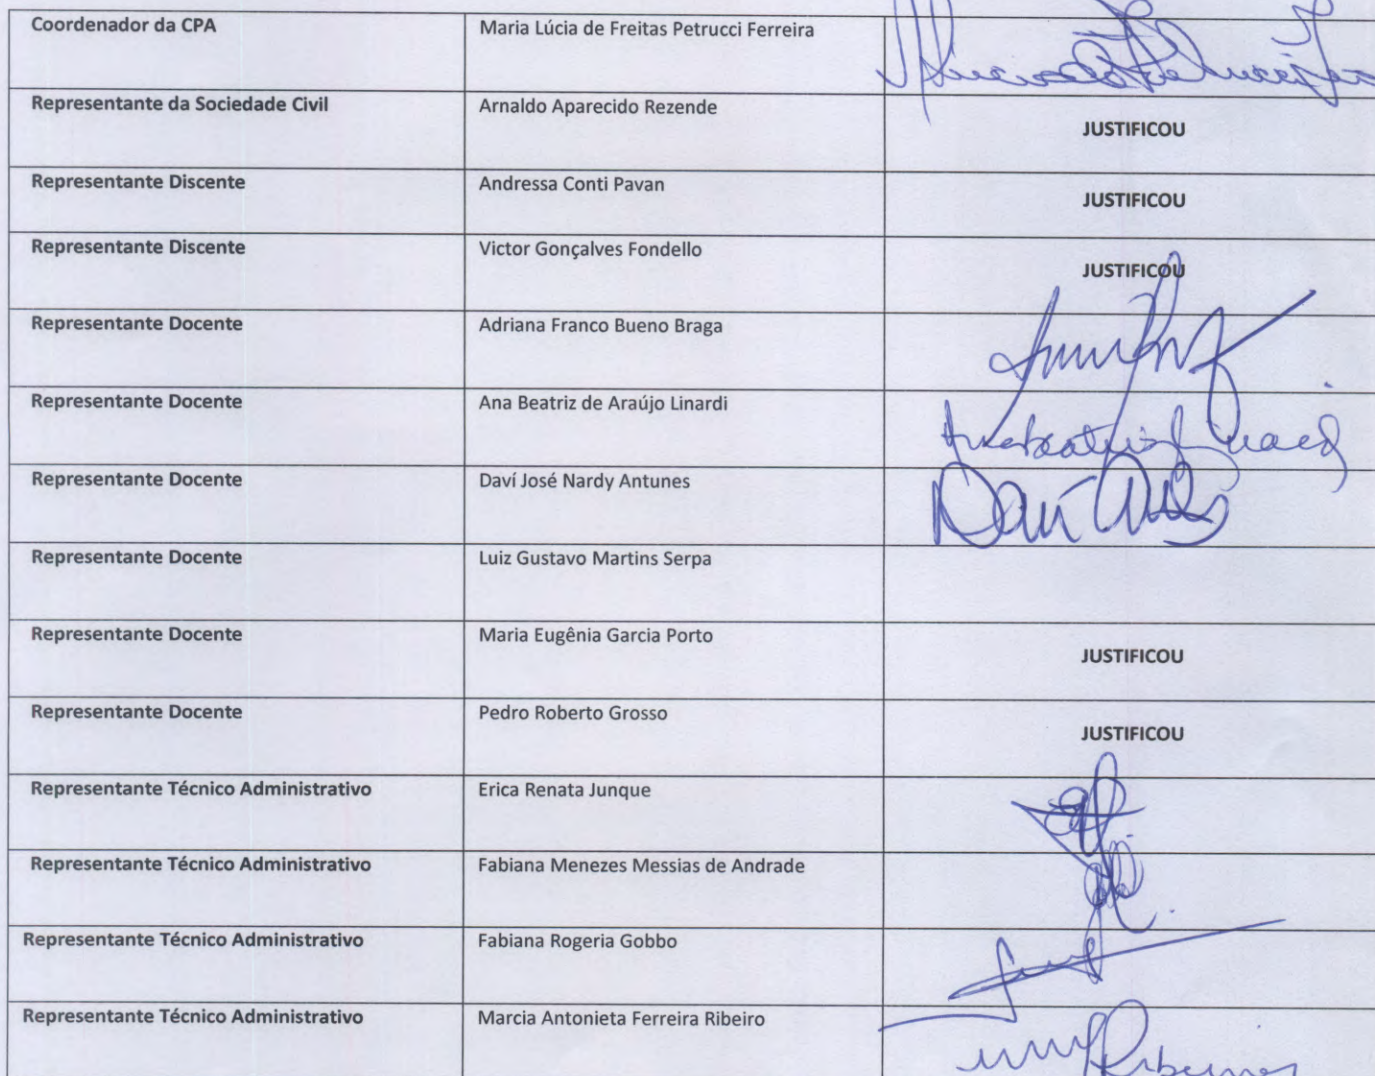 Coordenador da CPA Maria Lúcia de Freitas Petrucci Ferreira
Representante da Sociedade Civil Arnaldo Aparecido Rezende JUSTIFICOU
Representante Discente Andressa Conti Pavan JUSTIFICOU
Representante Discente Victor Gonçalves Fondello JUSTIFICOU
Representante Docente Adriana Franco Bueno Braga
Representante Docente Ana Beatriz de Araújo Linardi
Representante Docente Daví José Nardy Antunes
Representante Docente Luiz Gustavo Martins Serpa
Representante Docente Maria Eugênia Garcia Porto JUSTIFICOU
Representante Docente Pedro Roberto Grosso JUSTIFICOU
Representante Técnico Administrativo Erica Renata Junque
Representante Técnico Administrativo Fabiana Menezes Messias de Andrade
Representante Técnico Administrativo Fabiana Rogeria Gobbo
Representante Técnico Administrativo Marcia Antonieta Ferreira Ribeiro